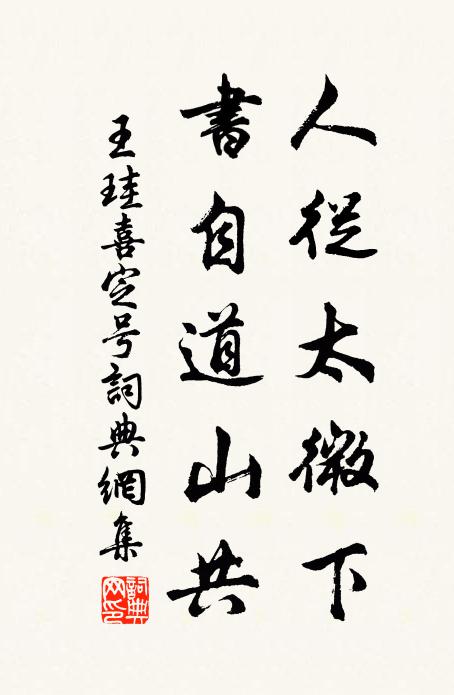 人從太微下
書自道山共
王珪喜定号詞典網集
詞典网印